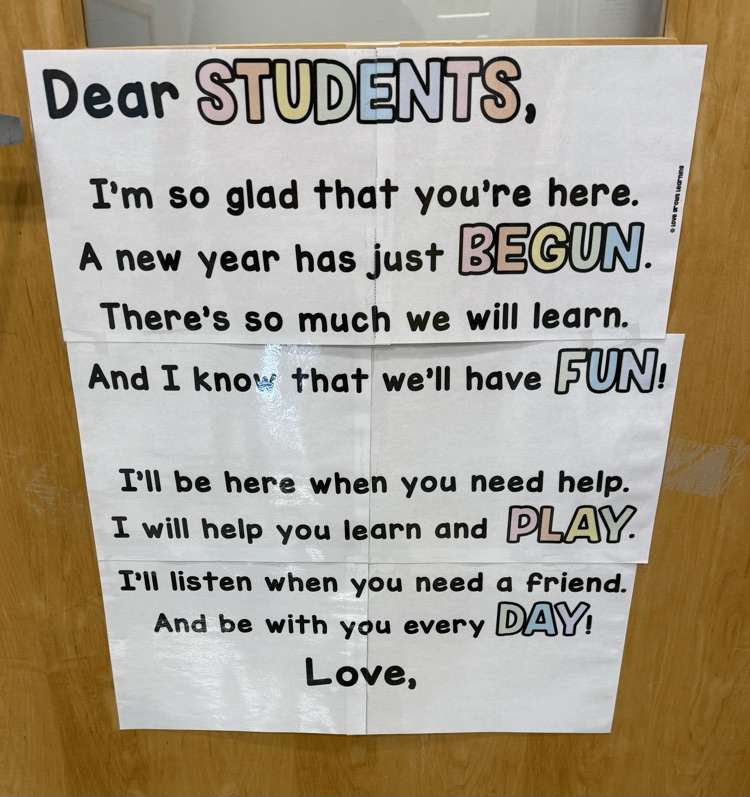 Dear STUDENTS,
I'm so glad that you're here.
A new year has just BEGUN.
There's so much we will learn.
And I know that we'll have FUN!
I'll be here when you need help.
I will help you learn and PLAY.
I'll listen when you need a friend.
And be with you every DAY!
Love,
© Love Grows Learning